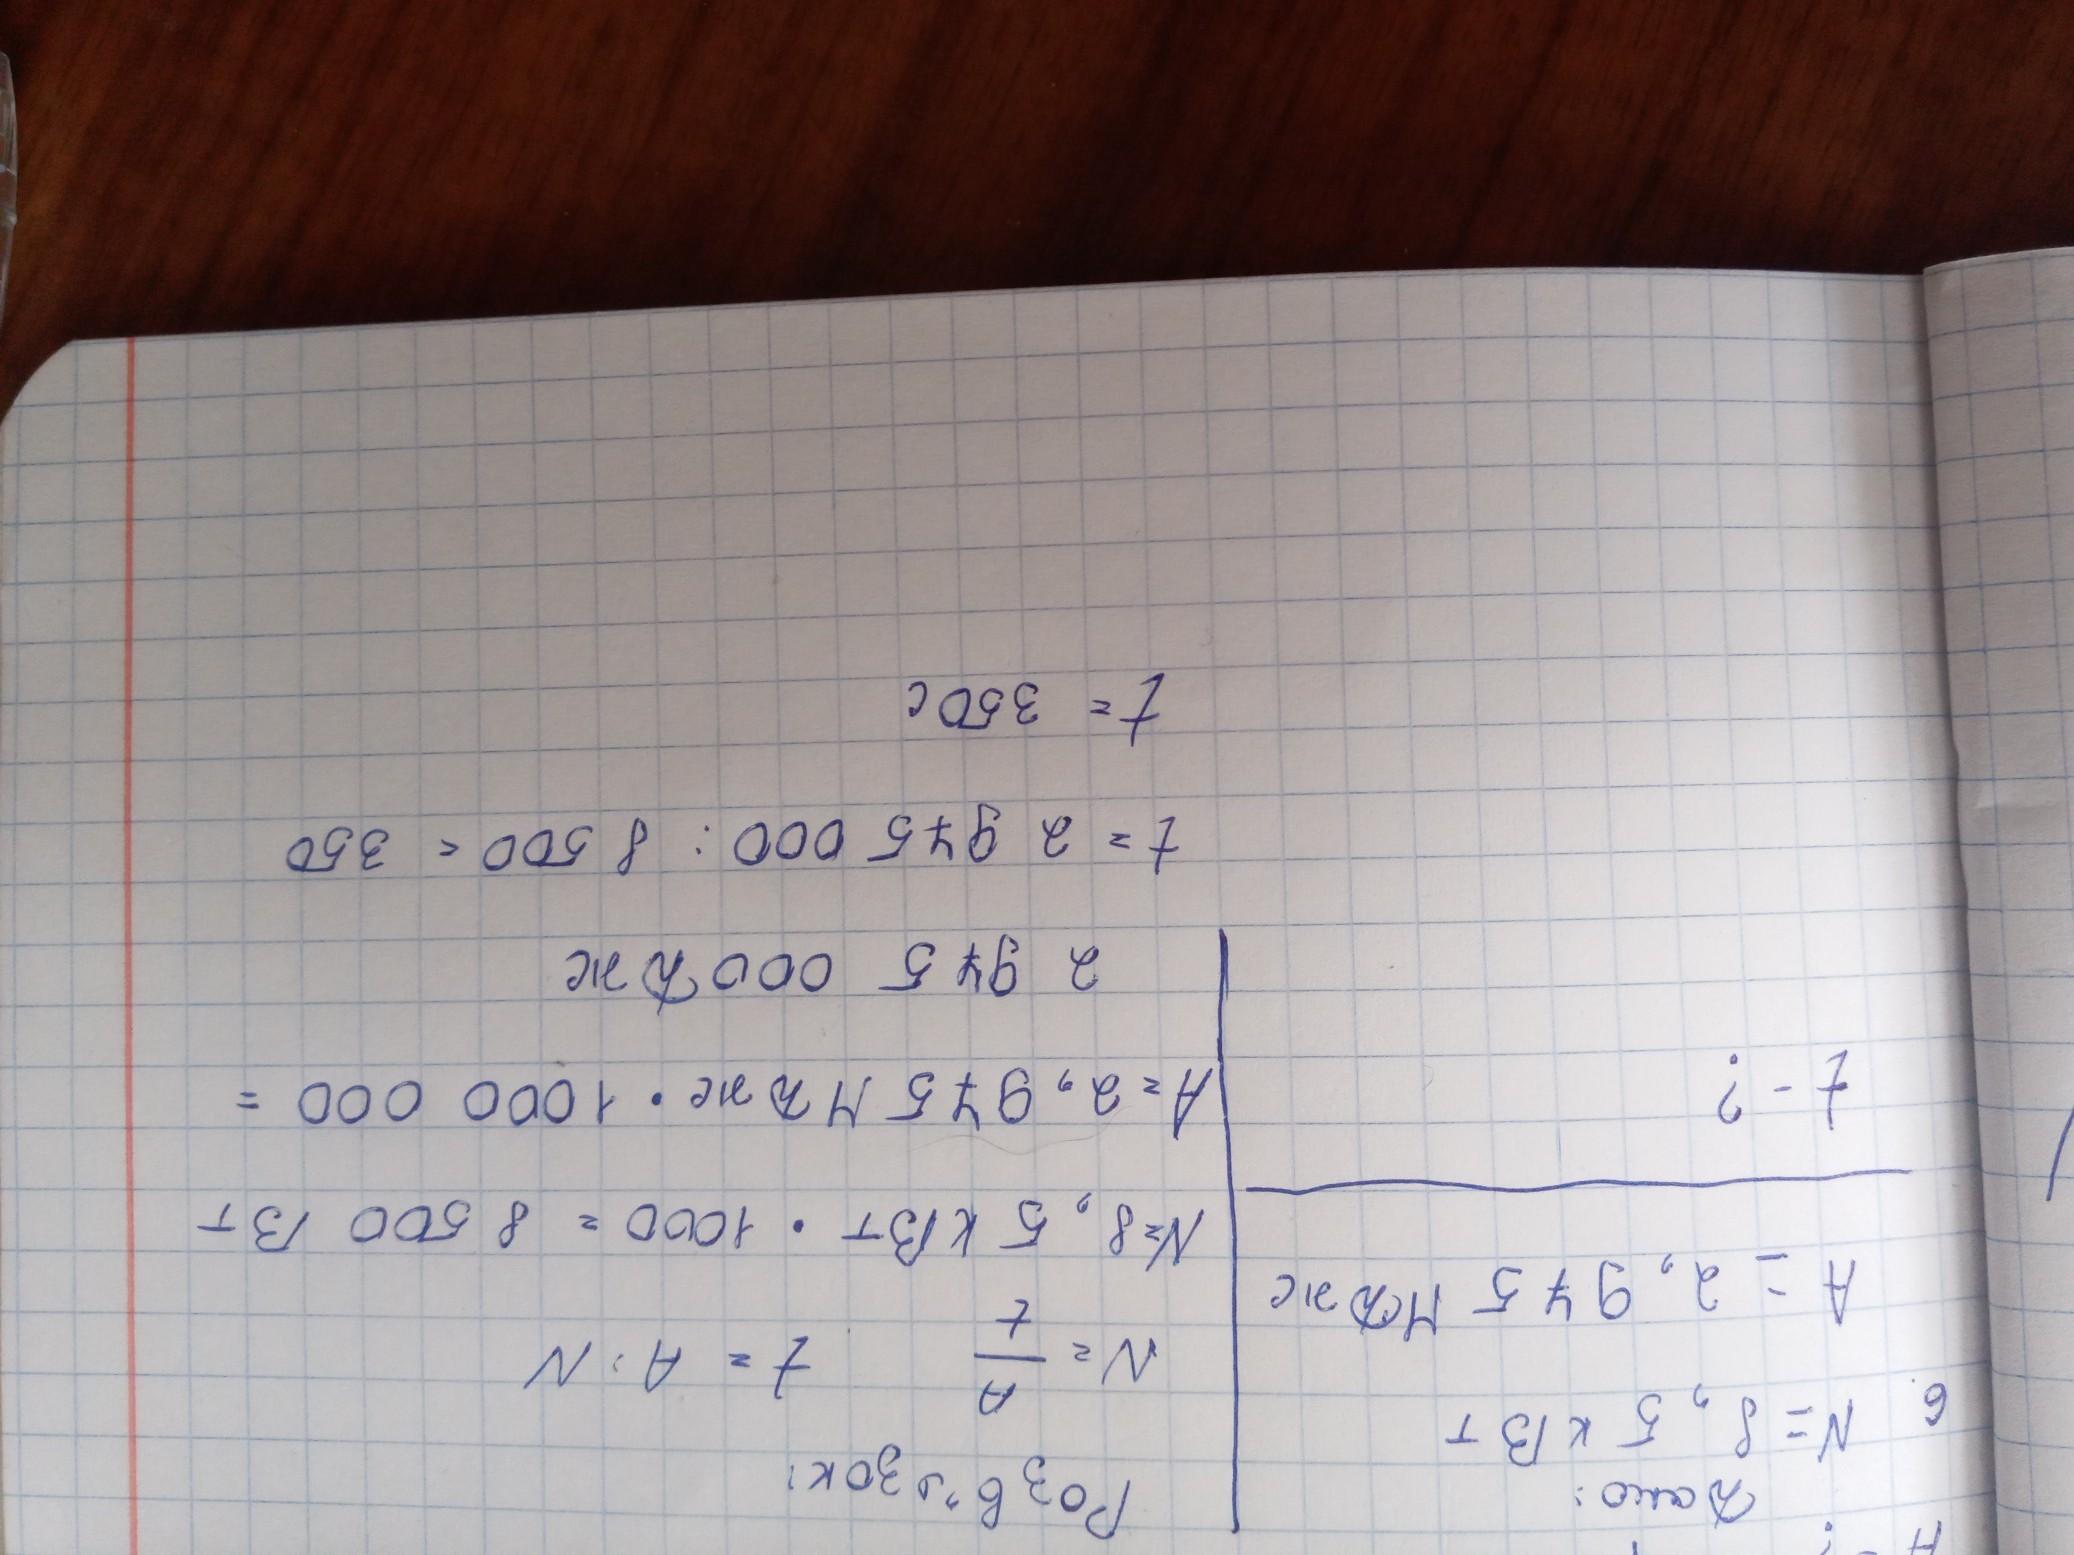 6. Дано:
N = 8,5 кВт
A = 2,975 МДж
t - ?
Розв'язок:
N = A/t t = A : N
N = 8,5 кВт · 1000 = 8 500 Вт
A = 2,975 МДж · 1000 000 =
2 975 000 Дж
t = 2 975 000 : 8 500 = 350
t = 350 с